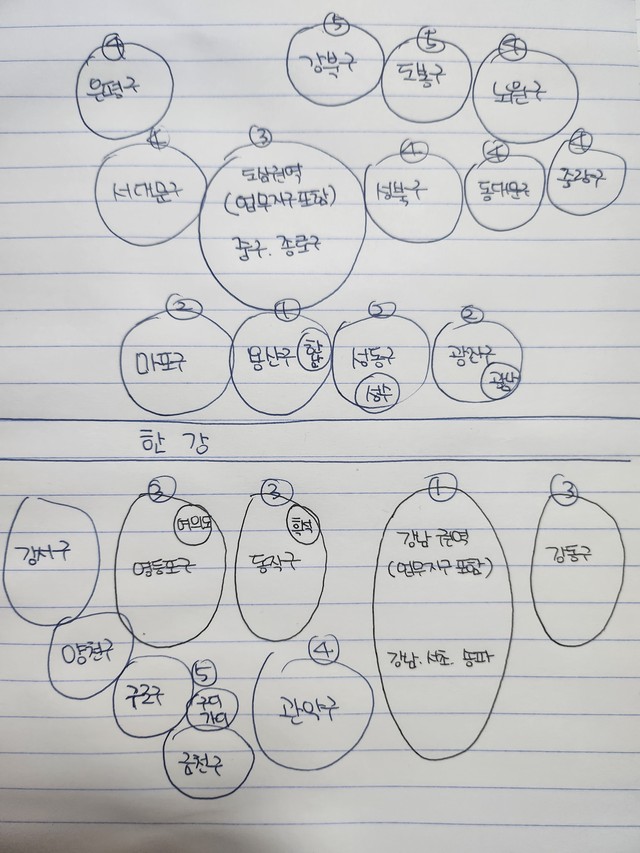 ④
은평구
⑤
강북구
⑤
도봉구
④
노원구
④
서대문구
③
도심권역
(업무지구 포함)
중구. 종로구
④
성북구
④
동대문구
④
중랑구
②
마포구
①
용산구
②
성동구
성수
②
광진구
한강
③
여의도
영등포구
③
흑석
동작구
①
강남 권역
(업무지구 포함)
강남. 서초. 송파
③
강동구
강서구
양천구
구로구
⑤
구디
가디
금천구
④
관악구